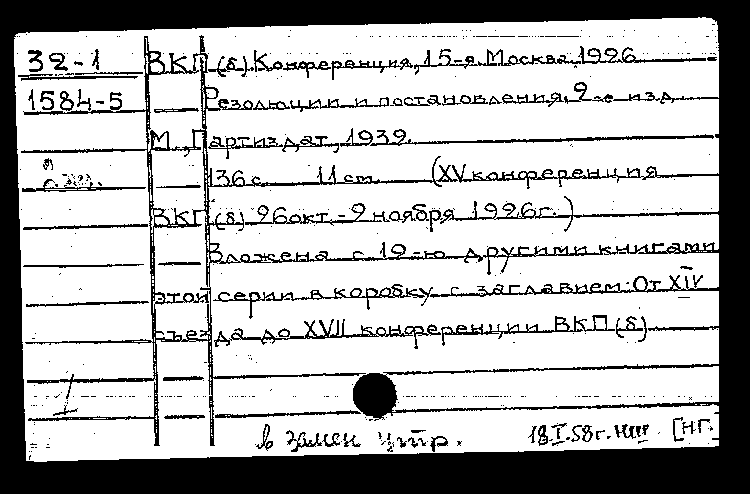 32-1 ВКП(б). Конференция, 15-я. Москва. 1926
1584-5 Резолюции и постановления, 2-е изд.
М., Партиздат, 1932.
136 с. 11 cm (XV конференция
ВКП(б) 26 окт.-2 ноября 1926 г.)
Вложена с 12-ю другими книгами
этой серии в коробку с заглавием: От XIV
съезда до XVII конференции ВКП(б)
1
в замен утр. 18.I.58 г. [НГ.